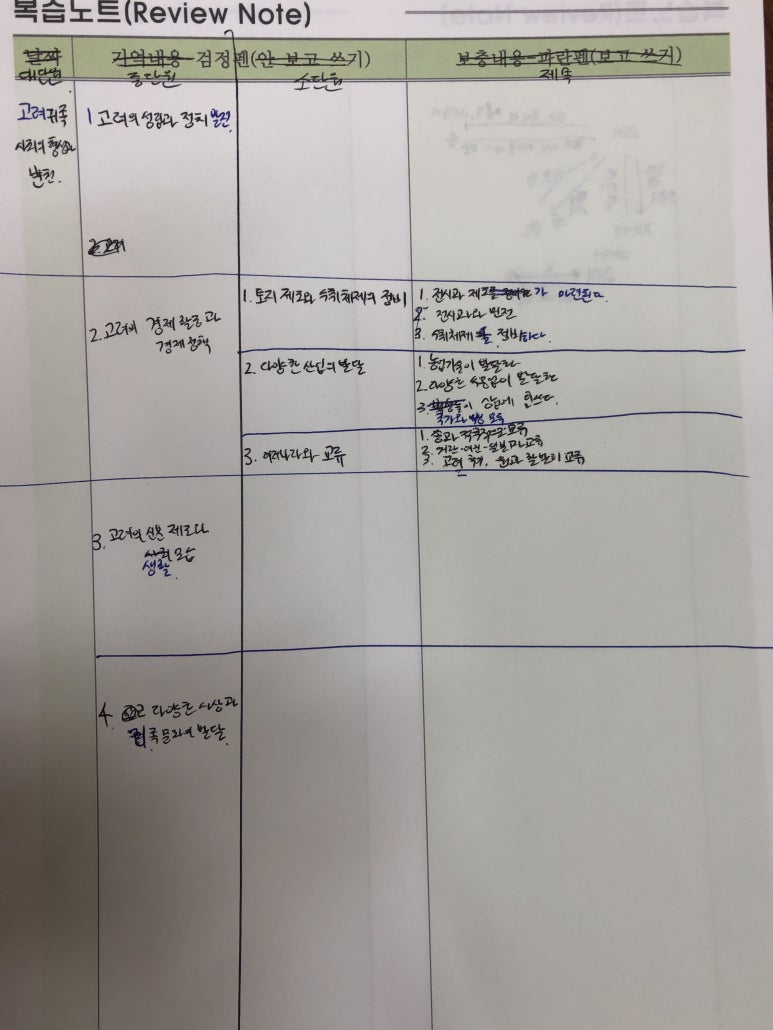 복습노트(Review Note)
날짜 기억내용-검정펜(안 보고 쓰기) 보충내용-파란펜(보고 쓰기)
대단원 중단원 소단원 제목
고려 귀족
사회의 형성과
변천.
1 고려의 성립과 정치 발전
2. 고려
2. 고려의 경제 활동과
경제 정책
1. 토지 제도와 수취체제의 정비
1. 전시과 제도 가 마련된다.
2. 전시과의 변천
3. 수취체제를 정비하다.
2. 다양한 산업의 발달
1. 농업기술이 발달하다
2. 다양한 수공업이 발달하다
3. 이 상업에 힘쓰다.
국가와
3. 여러나라와 교류
1. 송과 적극적으로 교류
2. 거란·여진·일본과 교류
3. 고려 후기, 원과 활발히 교류
3. 고려의 신분 제도와
사회 모습
생활
4. 고려 다양한 사상과
귀족 문화의 발달.